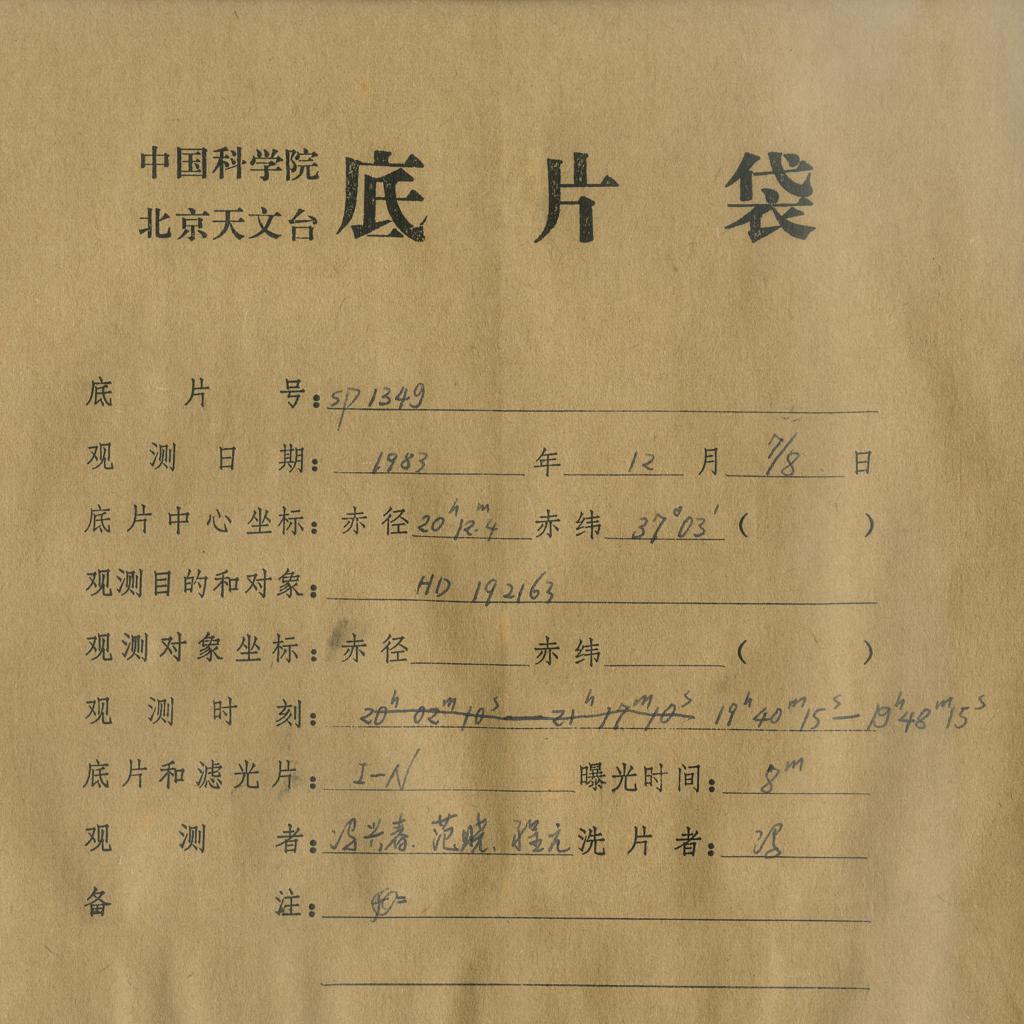 中国科学院
北京天文台 底片袋
底片号: sp 1349
观测日期: 1983 年 12 月 7/8 日
底片中心坐标: 赤径 20ʰ12ᵐ.4 赤纬 37°03′ ( )
观测目的和对象: HD 192163
观测对象坐标: 赤径 赤纬 ( )
观测时刻: 20ʰ02ᵐ10ˢ — 21ʰ17ᵐ10ˢ 19ʰ40ᵐ15ˢ — 19ʰ48ᵐ15ˢ
底片和滤光片: I-N 曝光时间: 8ᵐ
观测者: 冯兴春. 范晓. 洗片者: 冯
备注: